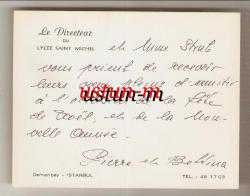 Le Directeur
DU
LYCÉE SAINT MICHEL
et Mme Strub
vous prient de recevoir
leurs vœux et amitié
à l'occasion de la fête
de Noël, et de la Nou-
velle Année.
Pierre et
ustum-m
ustum-m
Osmanbey - ISTANBUL
TEL. : 48 17 09